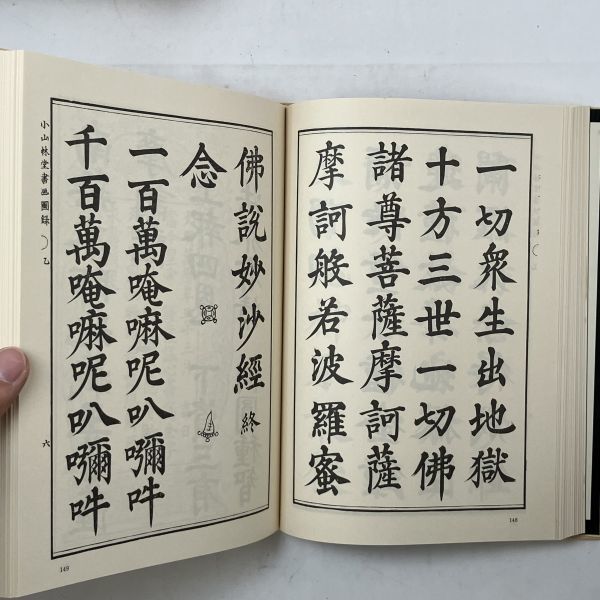 一切衆生出地獄
十方三世一切佛
諸尊菩薩摩訶薩
摩訶般若波羅蜜
148
佛說妙沙經終
念
一百萬唵嘛呢叭嚩吽
千百萬唵嘛呢叭嚩吽
小山林堂書画圖録
乙
六
149